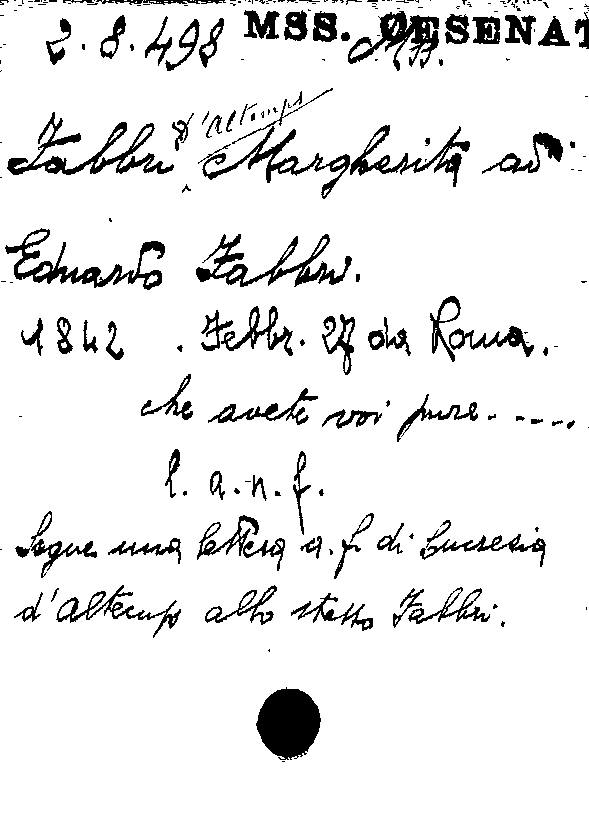 2.8.498 MSS. CESENAT
Ms.
d'Altemps
Fabbri Margherita ad
Eduardo Fabbri.
1842 . Febbr. 27 da Roma.
che avete voi pure.....
l. a. n. f.
Segue una lettera a. f. di Lucrezia
d'Altemps allo stesso Fabbri.